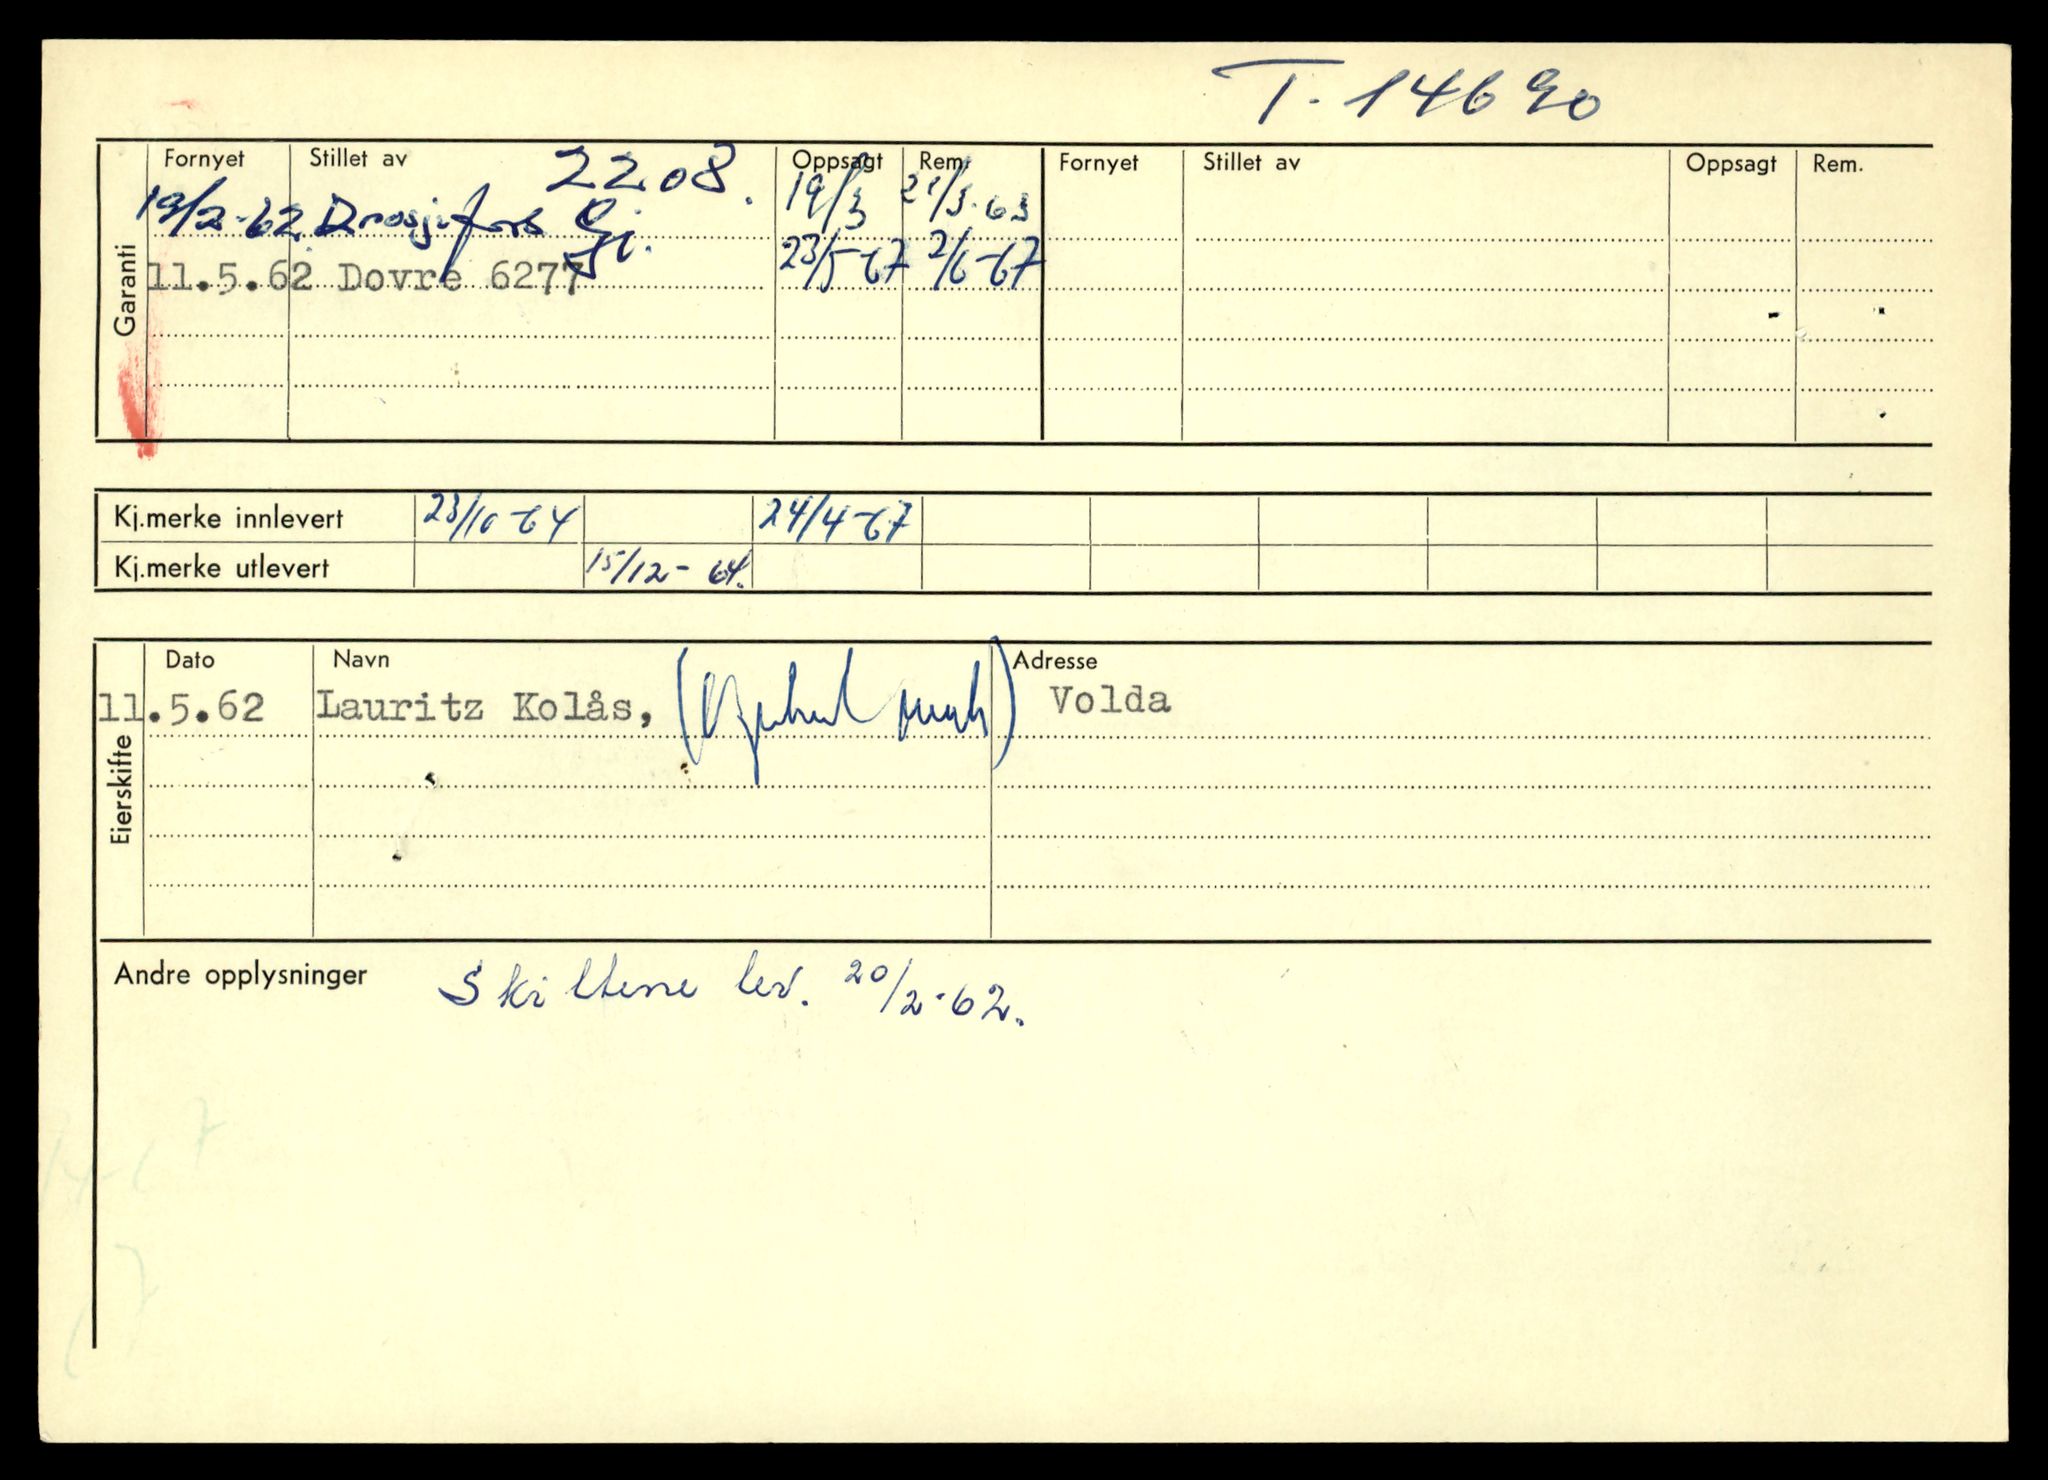 T. 14690
Garanti
Fornyet Stillet av Oppsagt Rem. Fornyet Stillet av Oppsagt Rem.
2208.
19/2-62 Drosjefors Gj. 19/3 21/3-63
11.5.62 Dovre 6277 23/5-67 2/6-67
Kj.merke innlevert 23/10-64 24/4-67
Kj.merke utlevert 15/12-64.
Eierskifte
Dato Navn Adresse
11.5.62 Lauritz Kolås, Volda
Andre opplysninger Skiltene lev. 20/2-62.